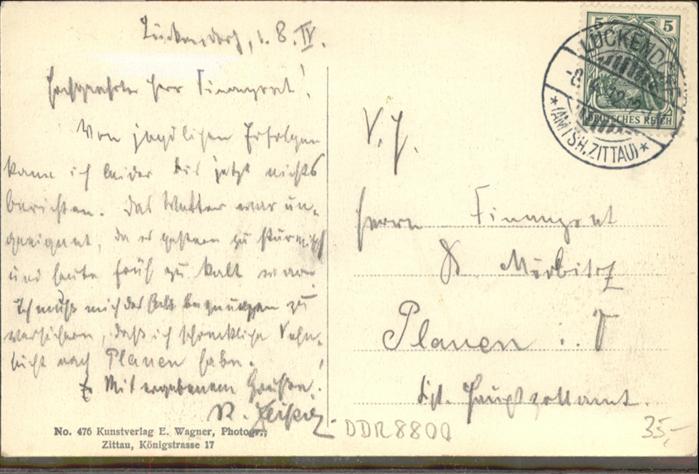 Lückendorf, d. 8. IV.
Hochgeehrter Herr Finanzrat!
Von jagdlichen Erfolgen
kann ich leider bis jetzt nichts
berichten. Das Wetter war un-
geeignet, da es gestern zu stürmisch
und heute früh zu kalt war.
Ich muß mich darauf begnügen zu
versichern, daß ich schreckliche Sehn-
sucht nach Plauen habe.
Mit ergebenem Grusse
R.
No. 476 Kunstverlag E. Wagner, Photogr.,
Zittau, Königstrasse 17
5 5
DEUTSCHES REICH
LÜCKENDORF
*(AMTSH. ZITTAU)*
Herrn Finanzrat
Dr. Mirbitz
Plauen i. V
Hauptzollamt.
DDR8800
35,-